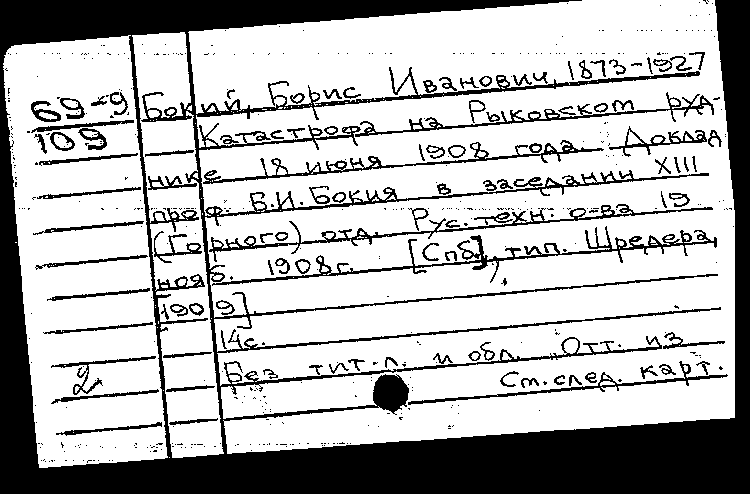 69-9 Бокий, Борис Иванович, 1873-1927
109 Катастрофа на Рыковском руд-
нике 18 июня 1908 года. Доклад
проф. Б.И. Бокия в заседании XIII
(Горного) отд. Рус. техн. о-ва 19
нояб. 1908г. [Спб.], тип. Шредера,
[1909].
14с.
Без тит. л. и обл. Отт. из
2 См. след. карт.